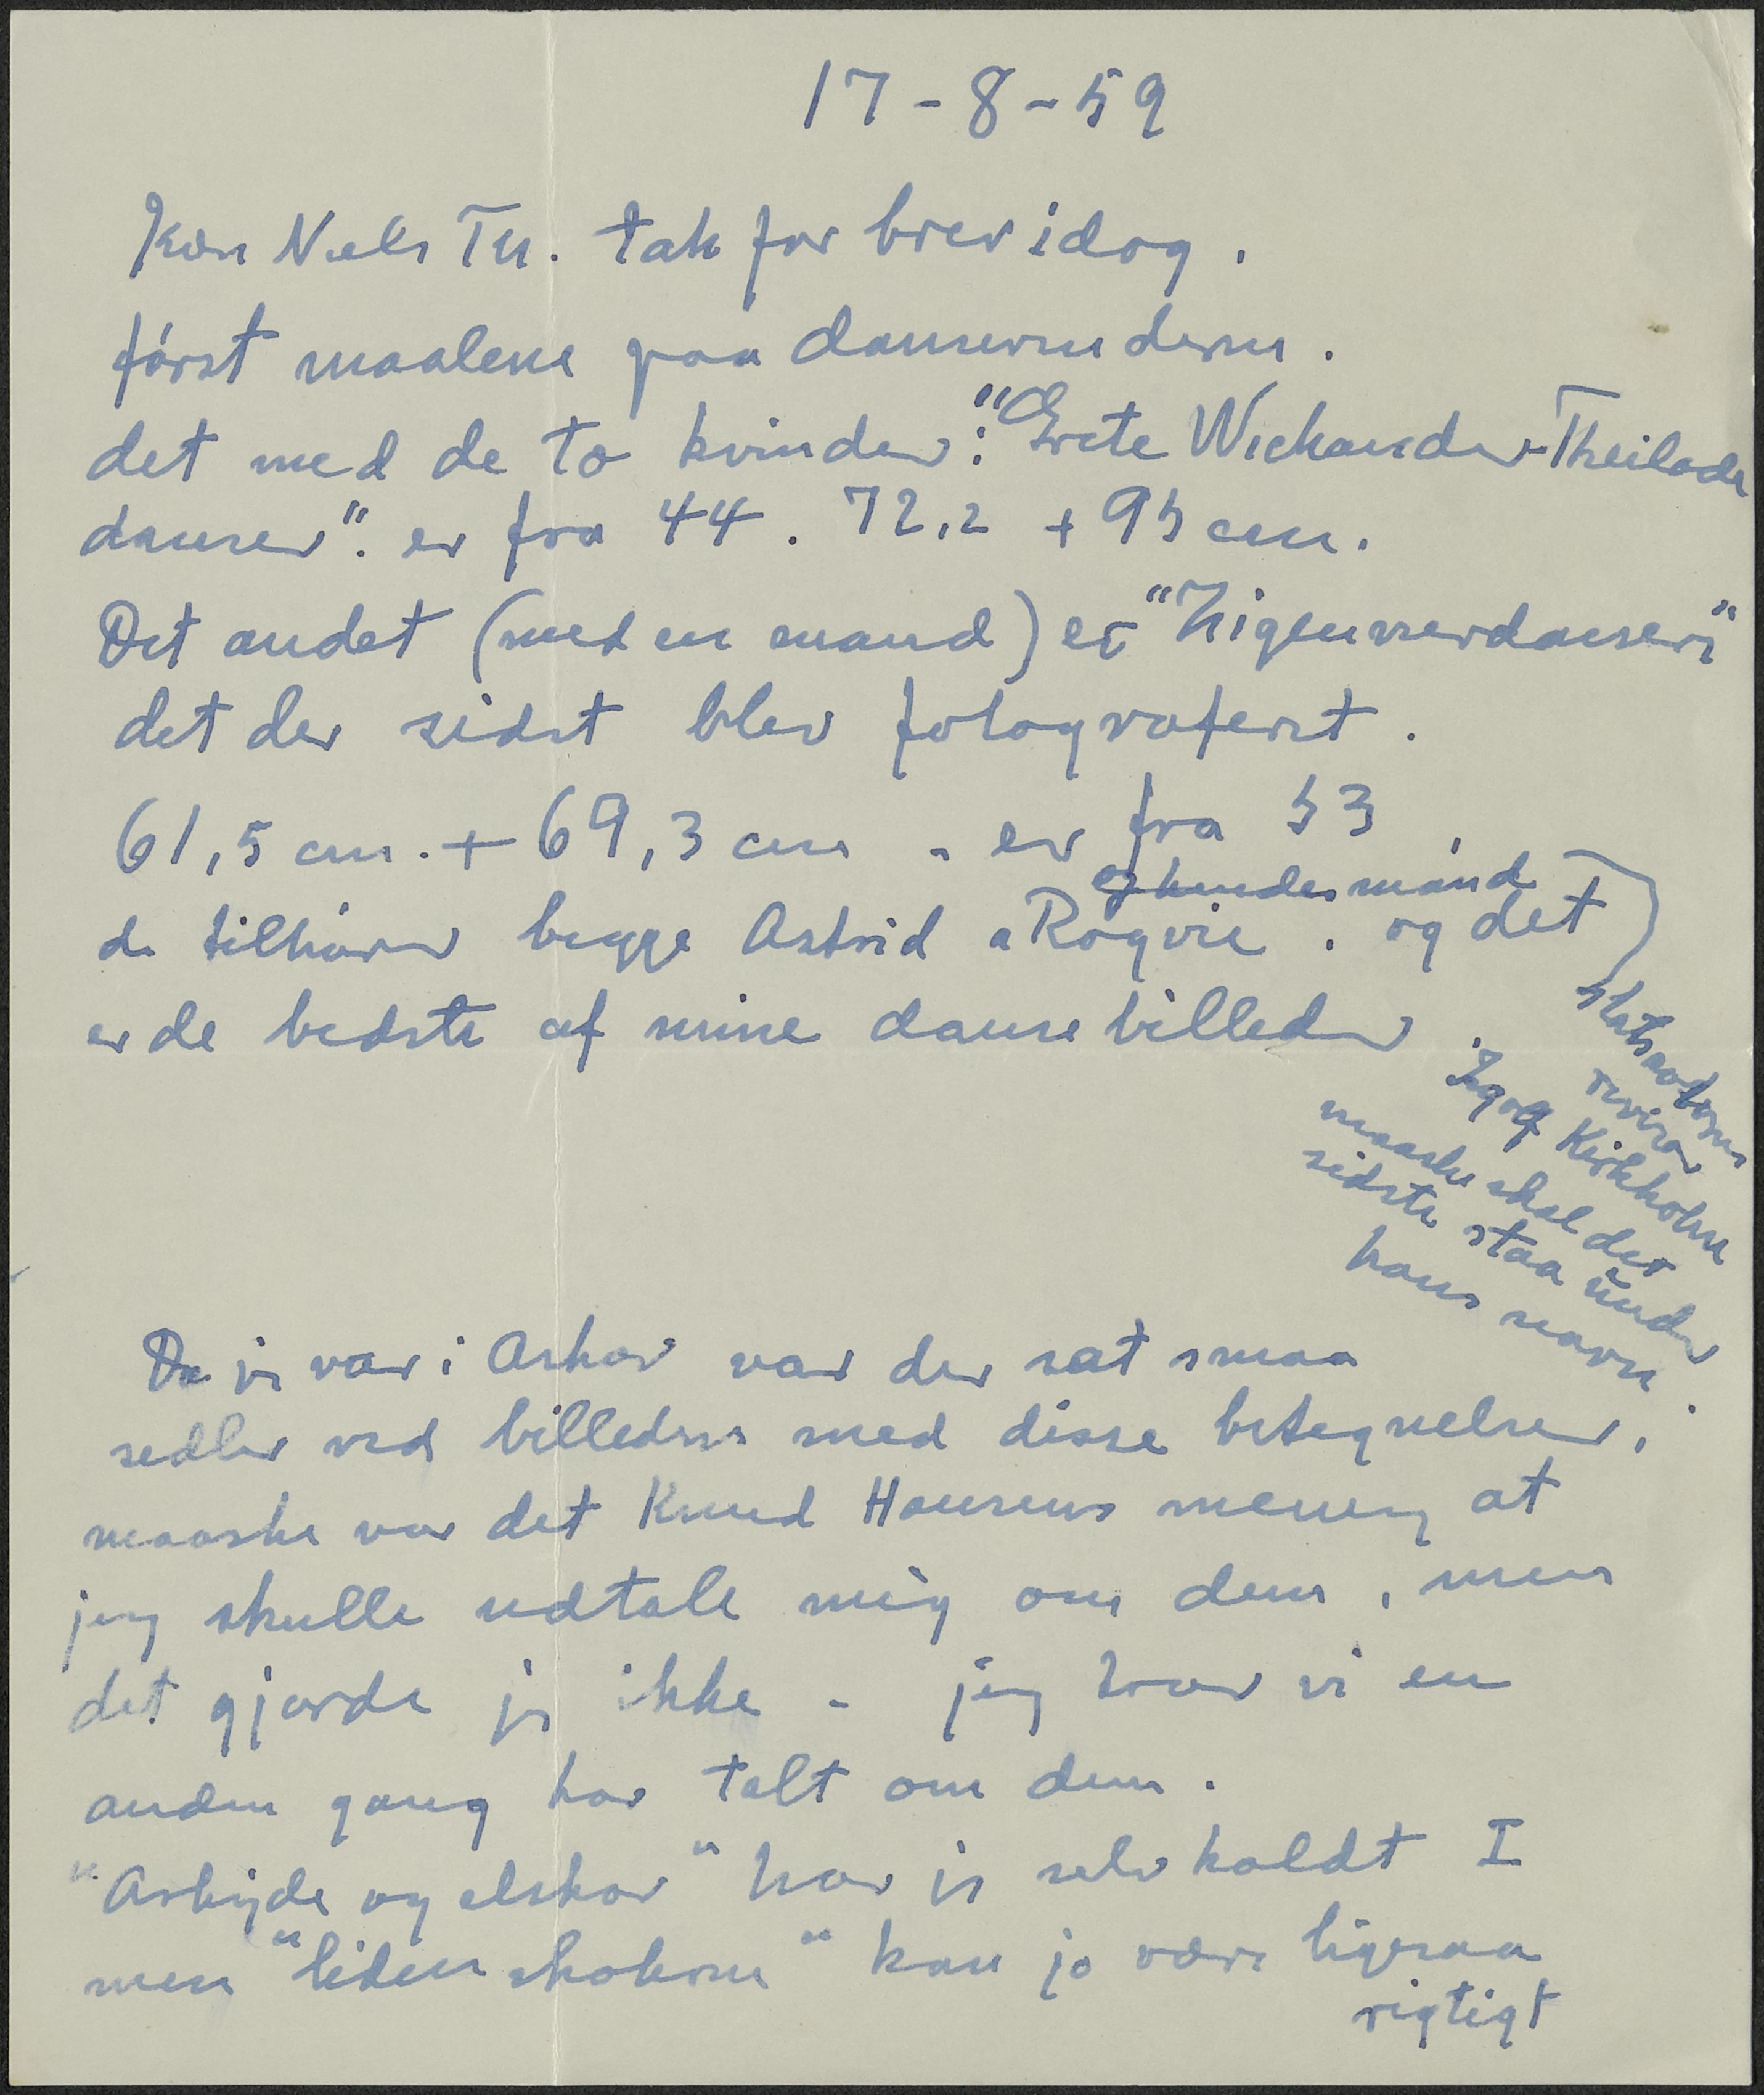 17-8-59
Kære Niels Th. tak for brev idag.
først maalene paa danserinderne.
det med de to kvinder: "Grete Wickander-Theilade
danser". er fra 44. 72,2 + 95 cm.
Det andet (med en mand) er "Zigeunerdanser"
det der sidst blev fotograferet.
61,5 cm. + 69,3 cm - er fra 53.
og hendes mand
de tilhører begge Astrid a Rogvie. og det
er de bedste af mine danse billeder.
revisor
Ingolf Kirkholm
maaske skal det
sidste staa under
hans navn.
Da jeg var i Askov var der sat smaa
sedler ved billederne med disse betegnelser,
maaske var det Knud Hansens mening at
jeg skulle udtale mig om dem, men
det gjorde jeg ikke - jeg tror vi en
anden gang har talt om dem.
"Arbejde og elskov" har jeg selv holdt I
men "lidenskaben" kan jo være ligesaa
rigtigt